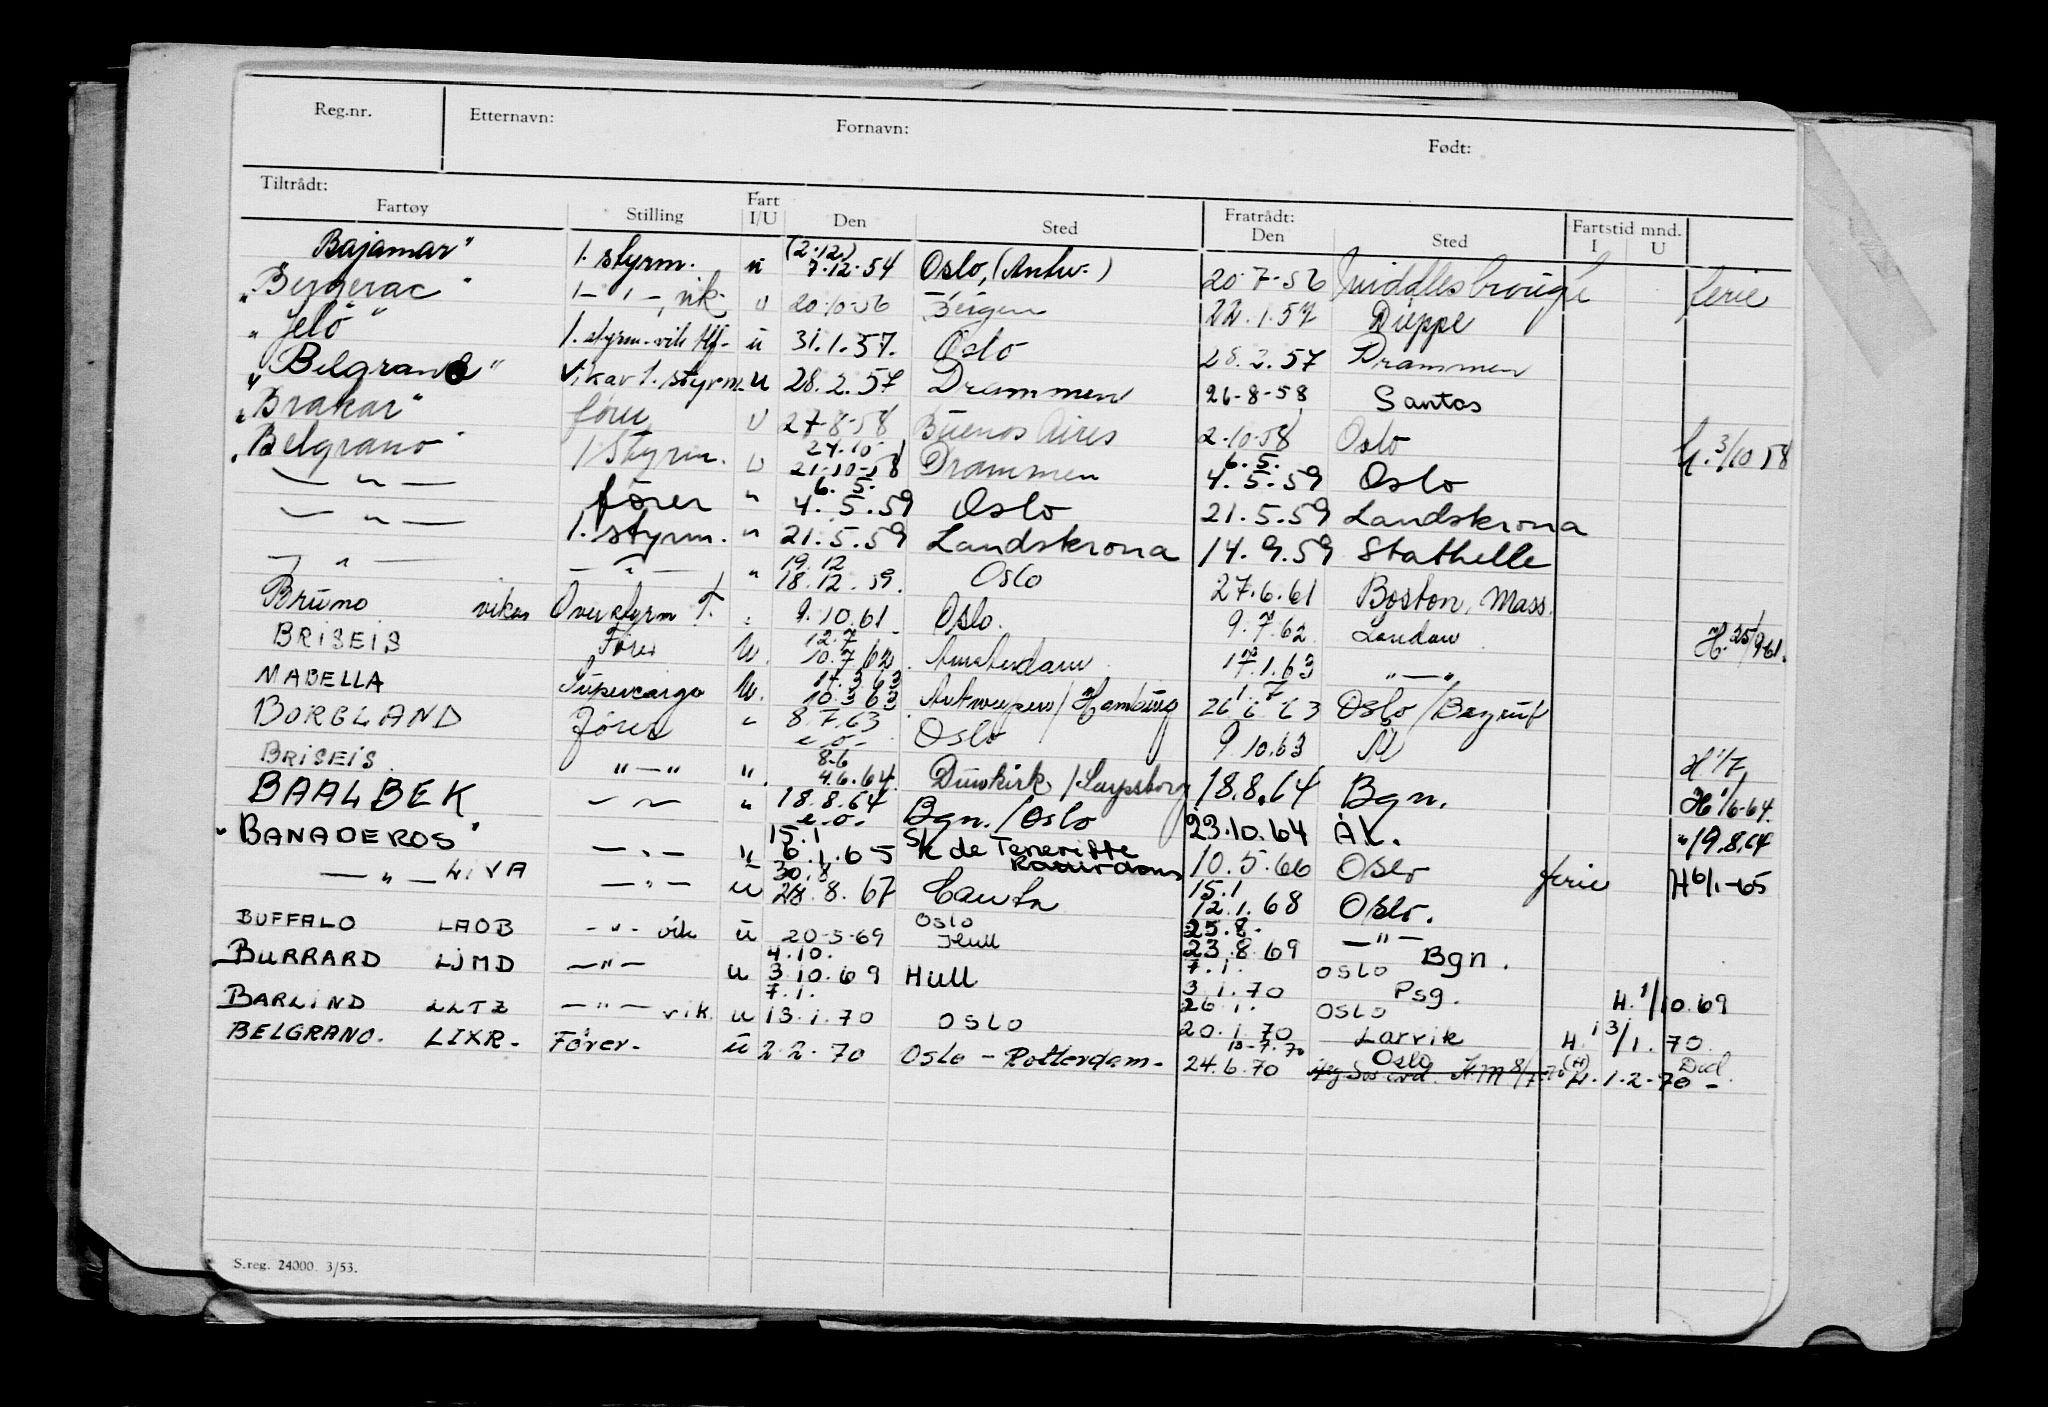 Reg.nr. Etternavn: Fornavn: Født:
Tiltrådt: Fartøy Stilling Fart I/U Den Sted Fratrådt: Den Sted Fartstid mnd. I U
"Bajamar" 1. styrm. u (2.12) 7.12.54 Oslo, (Antw.) 20.7.56 Middlesbrough ferie
"Bergerac" 1– " –, vik. u 20.10.56 Bergen 22.1.57 Dieppe
"Jelø" 1. styrm. vik u 31.1.57. Oslo 28.2.57 Drammen
"Belgrano" Vikar 1. styrm. u 28.2.57 Drammen 26-8-58 Santos
"Brakar" fører u 27-8-58 Buenos Aires 2-10-58 Oslo H. 3/10 58
"Belgrano" 1 styrm. u 24.10 21-10-58 Drammen 6.5. 4.5.59 Oslo
— " — fører " 6.5. 4.5.59 Oslo 21.5.59 Landskrona
— " — 1. styrm. " 21.5.59 Landskrona 14.9.59 Stathelle
— " — — " — " 19.12 18.12.59. Oslo 27.6.61 Boston, Mass.
Bruno vikar Overstyrm T. " 9.10.61 Oslo. 9.7.62 London H. 25/9-61.
BRISEIS Fører U. 12.7 10.7.62 Amsterdam 17.1.63 " — "
MABELLA Supercargo U. 11.3.63 10.3.63 Antwerpen/Hamburg 1.7 26.6.63 Oslo/
BORGLAND Fører " 8.7.63 e.o. Oslo 9.10.63 H 1/7
BRISEIS " — " ". 8-6 4.6.64. Dunkirk/Sarpsborg 18.8.64 Bgn. H 1/6-64.
BAALBEK — " — " 18.8.64 e.o. Bgn./Oslo 23.10.64 Ak. " 19.8.64
"BANADEROS" — " — " 15.1 6.1.65 Sk de Teneriffe 10.5.66 Oslo ferie H 6/1-65
— " — LIVA — " — u 30.8 28.8.67 15.1 12.1.68 Oslo.
BUFFALO LAOB — " — vik u 20-3-69 Oslo Hull 25.8. 23.8.69 — " — Bgn.
BURRARD LJMD — " — u 4.10. 3.10.69 Hull 7.1. 3.1.70 OSLO Psg. H. 1/10.69
BARLIND LLTZ — " — vik. u 7.1. 13.1.70 OSLO 26.1. 20.1.70 OSLO Larvik H. 13/1.70
BELGRANO. LIXR. Fører. u 2.2.70 Oslo – Rotterdam. 10-7.70 24.6.70 Oslo H. 1.2-70
S.reg. 24000. 3/53.